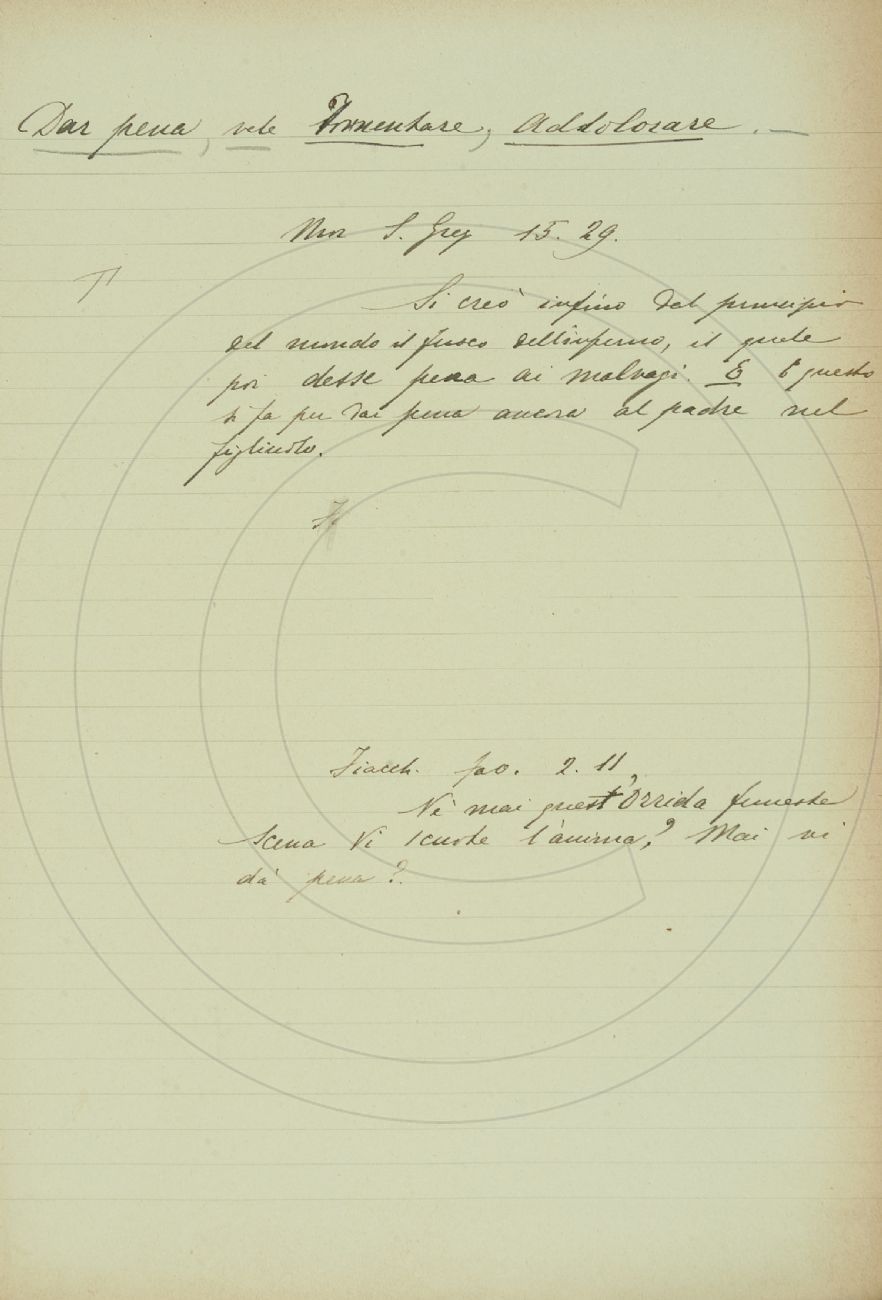 Dar pena, vale Tormentare, Addolorare. —
Mor S. Greg 15. 29.
Si creò infino dal principio
del mondo il fuoco dell'inferno, il quale
poi desse pena ai malvagi. E E questo
si fa per dar pena ancora al padre nel
figliuolo.
Fiacch. fav. 2. 11
Nè mai quest'orrida funesta
Scena Vi scuote l'anima? Mai vi
dà pena?.